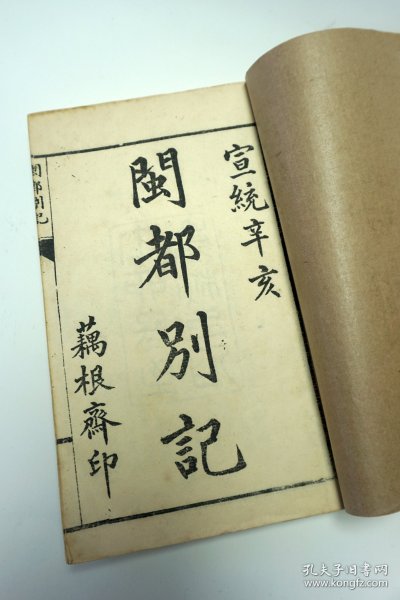 宣統辛亥
閩都別記
藕根齋印
閩都別記
孔夫子旧书网
www.kongfz.com